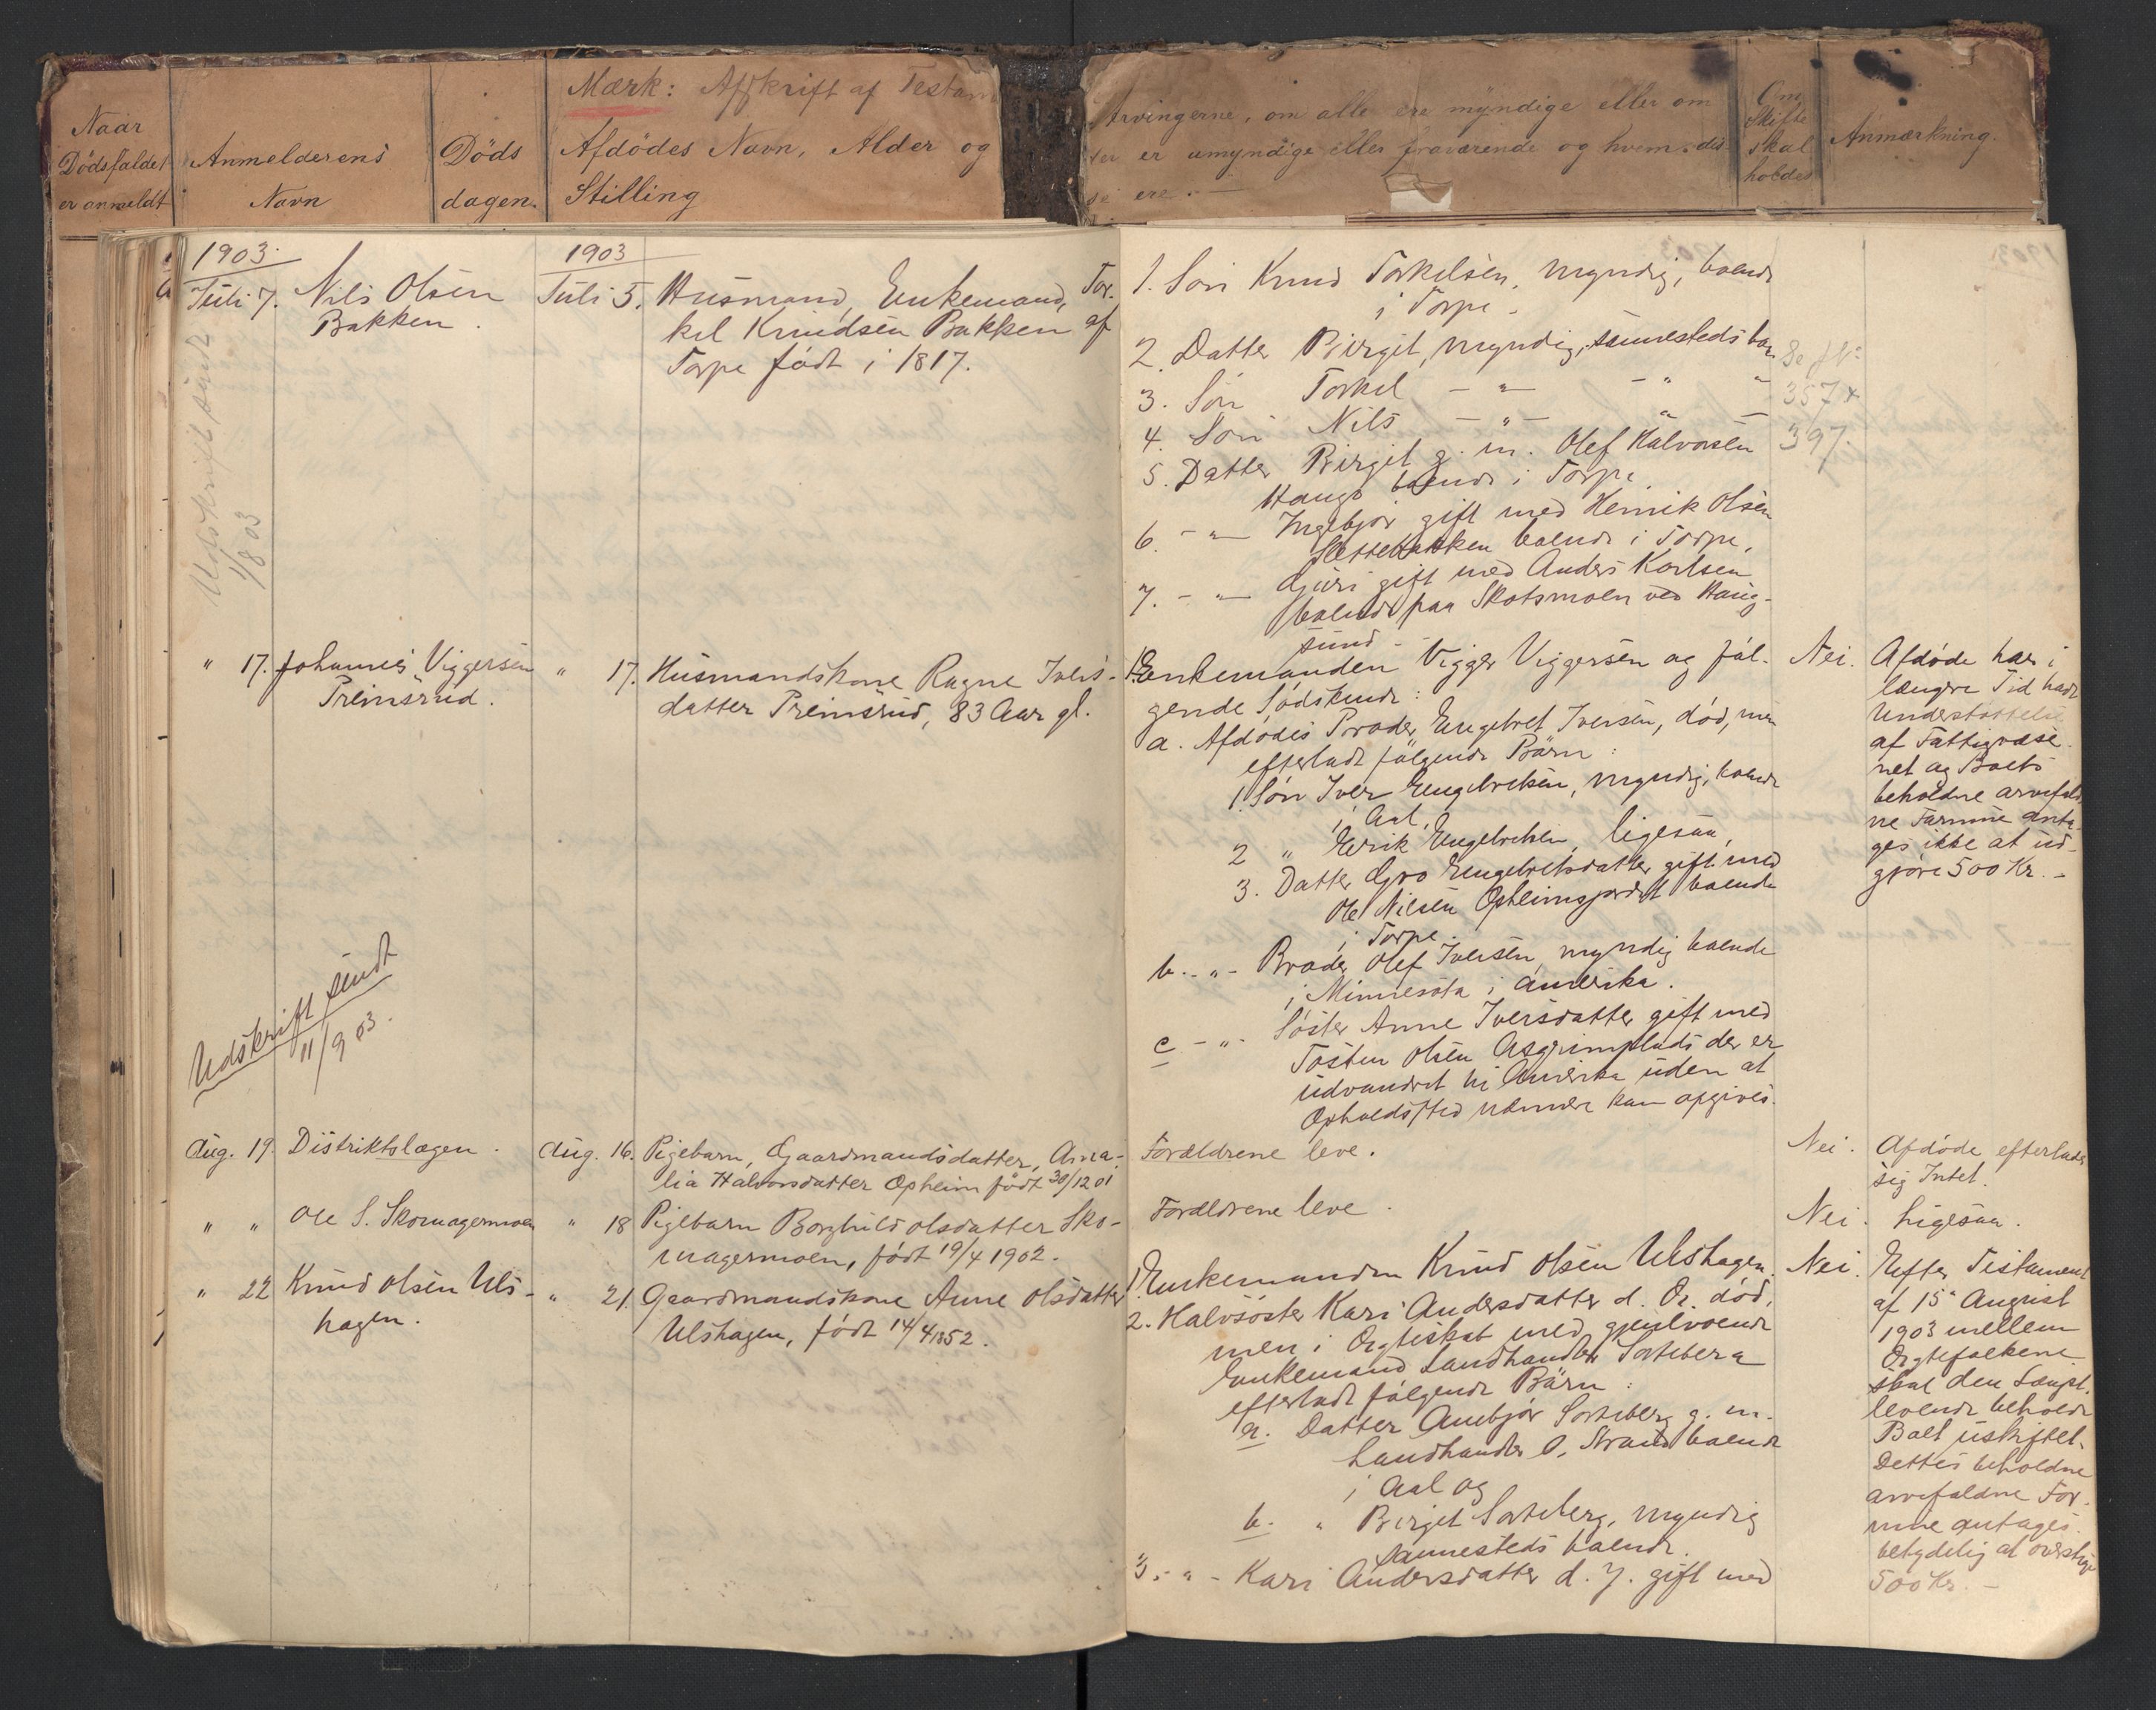 Mærk: Afskrift af Testam
Naar
Dödsfaldet
er anmeldt
Anmelderens
Navn
Döds
dagen.
Afdödes Navn, Alder og
Stilling
Arvingerne, om alle ere myndige eller om
er umyndige eller fraværende og hvem dis
se ere.
Om
Skifte
skal
holdes
Anmærkning.
1903.
1903
Juli 7.
Nils Olsen
Bakken.
Juli 5.
Husmand, Enkemand, Tor-
kel Knudsen Bakken af
Torpe født i 1817.
Udskrift sendt
1/8 03
1. Søn Knud Torkelsen, myndig, boende
i Torpe.
2. Datter Birgit, myndig, sammesteds bo
3. Søn Torkel — " — — " "
4. Søn Nils — " — " —
5. Datter Birgit g. m. Olef Halvorsen
Haugo boende i Torpe
6. — " — Ingebjør gift med Henrik Olsen
Slettebakken boende i Torpe,
7. — " — Guri gift med Anders Karlsen
boende paa Skotsmoen ved Haug-
sund
Se No
357 &
397.
" 17.
Johannes Viggersen
Preinsrud.
" 17.
Husmandskone Ragne Ivers-
datter Preinsrud, 83 Aar gl.
1. Enkemanden Vigger Viggersen og føl-
gende Sødskende:
a. Afdødes Broder Engebret Iversen, død, men
efterladt følgende Børn:
1. Søn Iver Engebretsen, myndig, boende
i Aal,
2 " Eerik Engebretsen, ligesaa,
3. Datter Gro Engebretsdatter gift med
Ole Nilsen Opheimsjordet boende
i Torpe.
b. — " — Broder Olef Iversen, myndig boende
i Minnesota i Amerika.
c — " — Søster Anne Iversdatter gift med
Tosten Olsen Asgrimplads der er
udvandret til Amerika uden at
Opholdssted nærmere kan opgives.
Nei.
Afdøde har i
længre Tid havt
Understøttelse
af Fattigvæse-
net og Boets
beholdne arvefald-
ne Formue anta-
ges ikke at ud-
gjøre 500 Kr. —
Udskrift sendt
11/9 03.
Aug. 19.
Distriktslægen.
Aug. 16.
Pigebarn, Gaardmandsdatter, Ama-
lia Halvorsdatter Opheim født 30/12 01
Forældrene leve.
Nei.
Afdøde efterlader
sig Intet.
" "
Ole S. Skomagermoen
" 18
Pigebarn Borghild Olsdatter Sko-
magermoen, født 19/4 1902.
Forældrene leve.
Nei.
Ligesaa.
" 22
Knud Olsen Uls-
hagen.
" 21.
Gaardmandskone Anne Olsdatter
Ulshagen, født 14/4 1852.
1. Enkemanden Knud Olsen Ulshagen.
2. Halvsøster Kari Andersdatter d. Æ. død,
men i Ægteskab med gjenlevende
Enkemand Landhandler Sorteberg
efterladt følgende Børn:
a. Datter Annbjør Sorteberg g. m.
Landhandler O. Strand boende
i Aal og
b. " Birgit Sorteberg, myndig
sammesteds boende.
3. — " — Kari Andersdatter d. Y. gift med
Nei.
Efter Testament
af 15 August
1903 mellem
Ægtefolkene
skal den Længst-
levende beholde
Boet uskiftet.
Dettes beholdne
arvefaldne For-
mue antages
betydelig at overstige
500 Kr. —